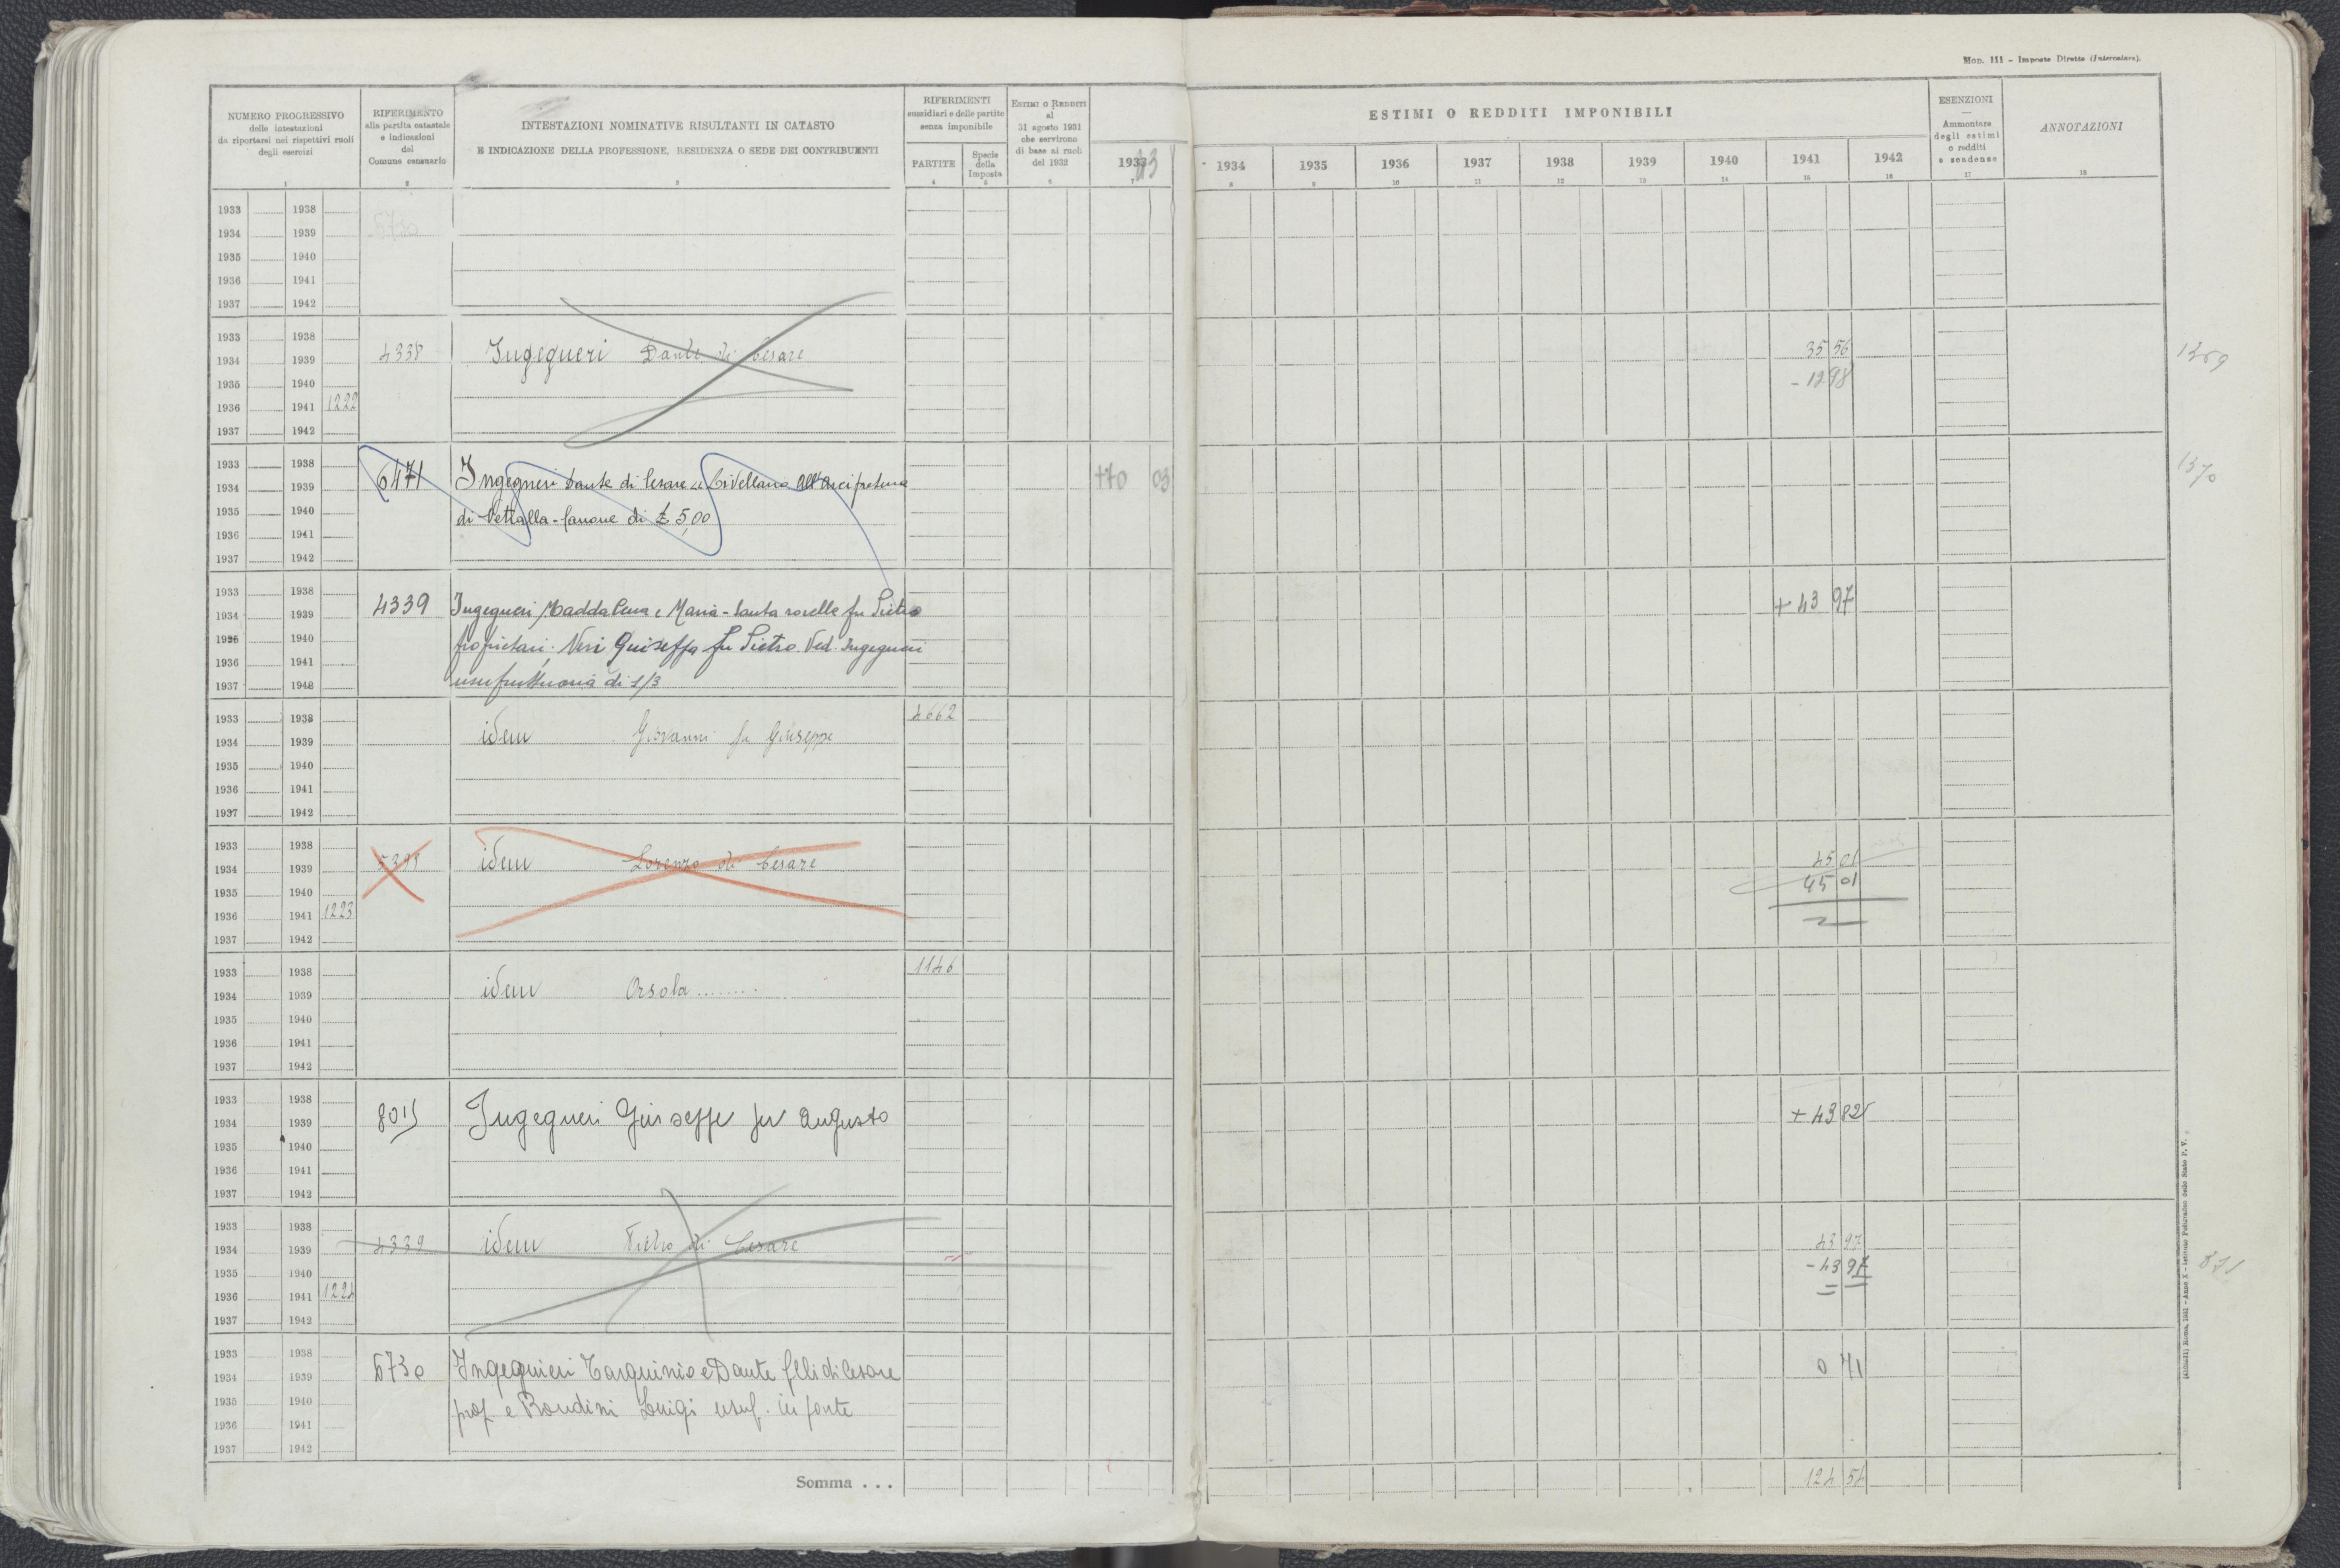 Mod. 111 - Imposte Dirette (Intercalare).
NUMERO PROGRESSIVO
delle intestazioni
da riportarsi nei rispettivi ruoli
degli esercizi
1
RIFERIMENTO
alla partita catastale
e indicazioni
del
Comune censuario
2
INTESTAZIONI NOMINATIVE RISULTANTI IN CATASTO
E INDICAZIONE DELLA PROFESSIONE, RESIDENZA O SEDE DEI CONTRIBUENTI
3
RIFERIMENTI
sussidiari e delle partite
senza imponibile
PARTITE
4
Specie
della
Imposta
5
ESTIMI O REDDITI
al
31 agosto 1931
che servirono
di base ai ruoli
del 1932
6
1933 43
7
ESTIMI O REDDITI IMPONIBILI
1934 1935 1936 1937 1938 1939 1940 1941 1942
8 9 10 11 12 13 14 15 16
ESENZIONI
Ammontare
degli estimi
o redditi
e scadenze
17
ANNOTAZIONI
18
1933 1938
1934 1939 6730
1935 1940
1936 1941
1937 1942
1933 1938
1934 1939 4338 Ingegneri Dante di Cesare 35 56 1369
1935 1940 - 12 98
1936 1941 1222
1937 1942
1933 1938
1934 1939 6471 Ingegneri Dante di Cesare Livellario all'Arcipretura +70 03 1370
1935 1940 di Vetralla - Canone di £ 5,00
1936 1941
1937 1942
1933 1938
1934 1939 4339 Ingegneri Maddalena e Maria-Santa sorelle fu Pietro + 43 97
1935 1940 proprietari. Neri Giuseppa fu Pietro Ved. Ingegneri
1936 1941
1937 1942 usufruttuaria di 1/3
1933 1938 4662
1934 1939 idem Giovanni fu Giuseppe
1935 1940
1936 1941
1937 1942
1933 1938
1934 1939 idem Lorenzo di Cesare 45 01
1935 1940 45 01
1936 1941 1223
1937 1942
1933 1938 1146
1934 1939 idem Orsola ........
1935 1940
1936 1941
1937 1942
1933 1938
1934 1939 8015 Ingegneri Giuseppe fu Augusto + 43 82
1935 1940
1936 1941
1937 1942
1933 1938
1934 1939 4339 idem Pietro di Cesare 43 97
1935 1940 - 43 97
1936 1941 1224
1937 1942
1933 1938
1934 1939 6730 Ingegnieri Tarquinio e Dante f.lli di Cesare 0 71
1935 1940 prop. e Bondini Luigi usuf. in parte
1936 1941
1937 1942
Somma . . . 124 54
Roma, 1931 - Anno X - Istituto Poligrafico dello Stato P. V.